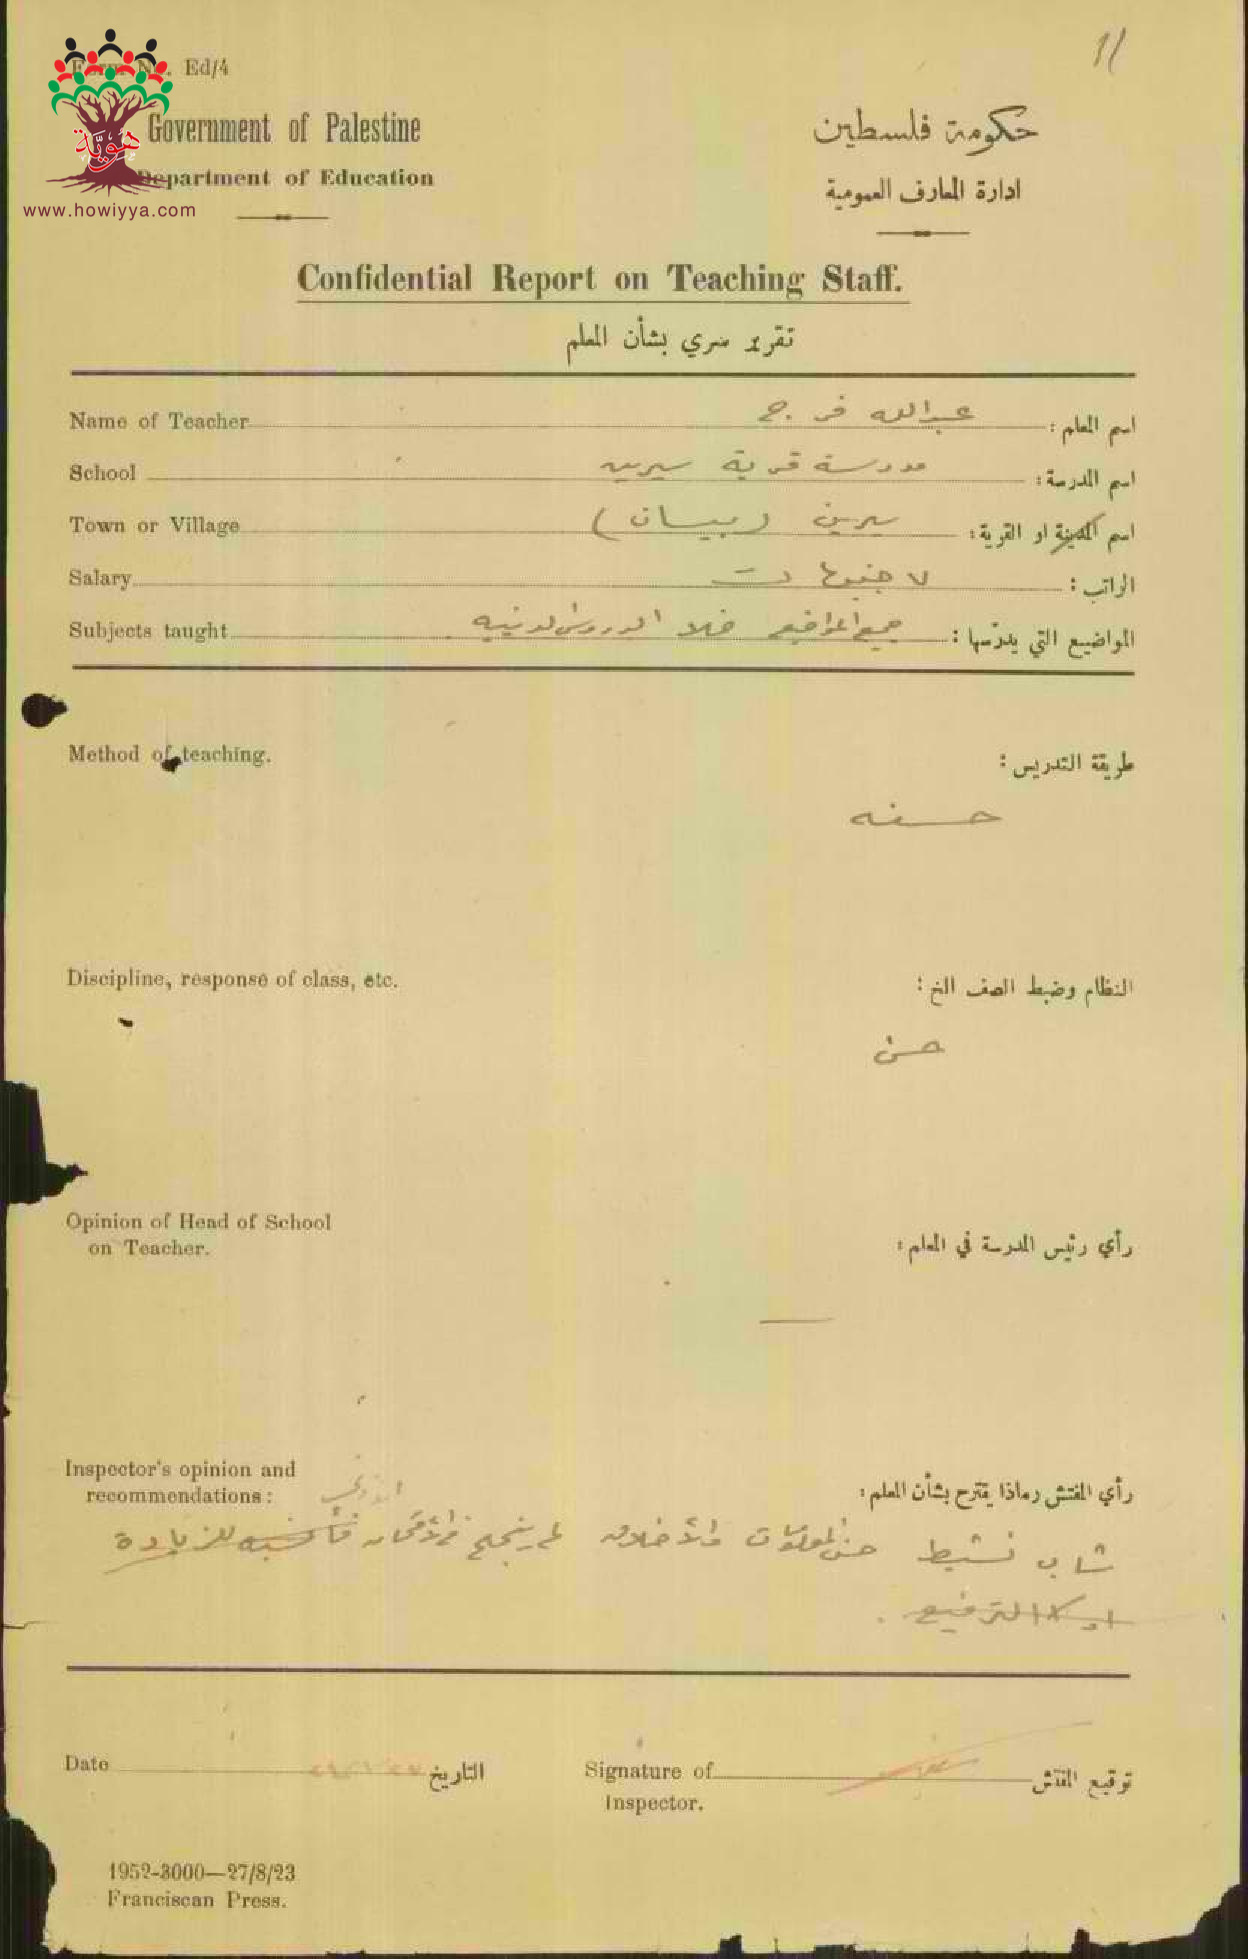 11
Form No. Ed/4
هوية
www.howiyya.com
Government of Palestine
حكومة فلسطين
Department of Education
ادارة المعارف العمومية
Confidential Report on Teaching Staff.
تقرير سري بشأن المعلم
Name of Teacher
اسم المعلم : عبدالله فرج
School
اسم المدرسة : مدرسة قرية سيرين
Town or Village
اسم المدينة او القرية : سيرين (بيسان)
Salary
الراتب : ٧ جنيهات
Subjects taught
المواضيع التي يدرّسها : جميع المواضيع خلا الدروس الدينيه
Method of teaching.
طريقة التدريس :
حسنه
Discipline, response of class, etc.
النظام وضبط الصف الخ :
حسن
Opinion of Head of School
on Teacher.
رأي رئيس المدرسة في المعلم :
—
Inspector's opinion and
recommendations :
رأي المفتش وماذا يقترح بشأن المعلم :
شاب نشيط حسن المعلومات والأخلاق لم ينجح في الامتحان للزيادة
او الترفيع .
Date
التاريخ
Signature of
Inspector.
توقيع المفتش
1952-3000—27/8/23
Franciscan Press.